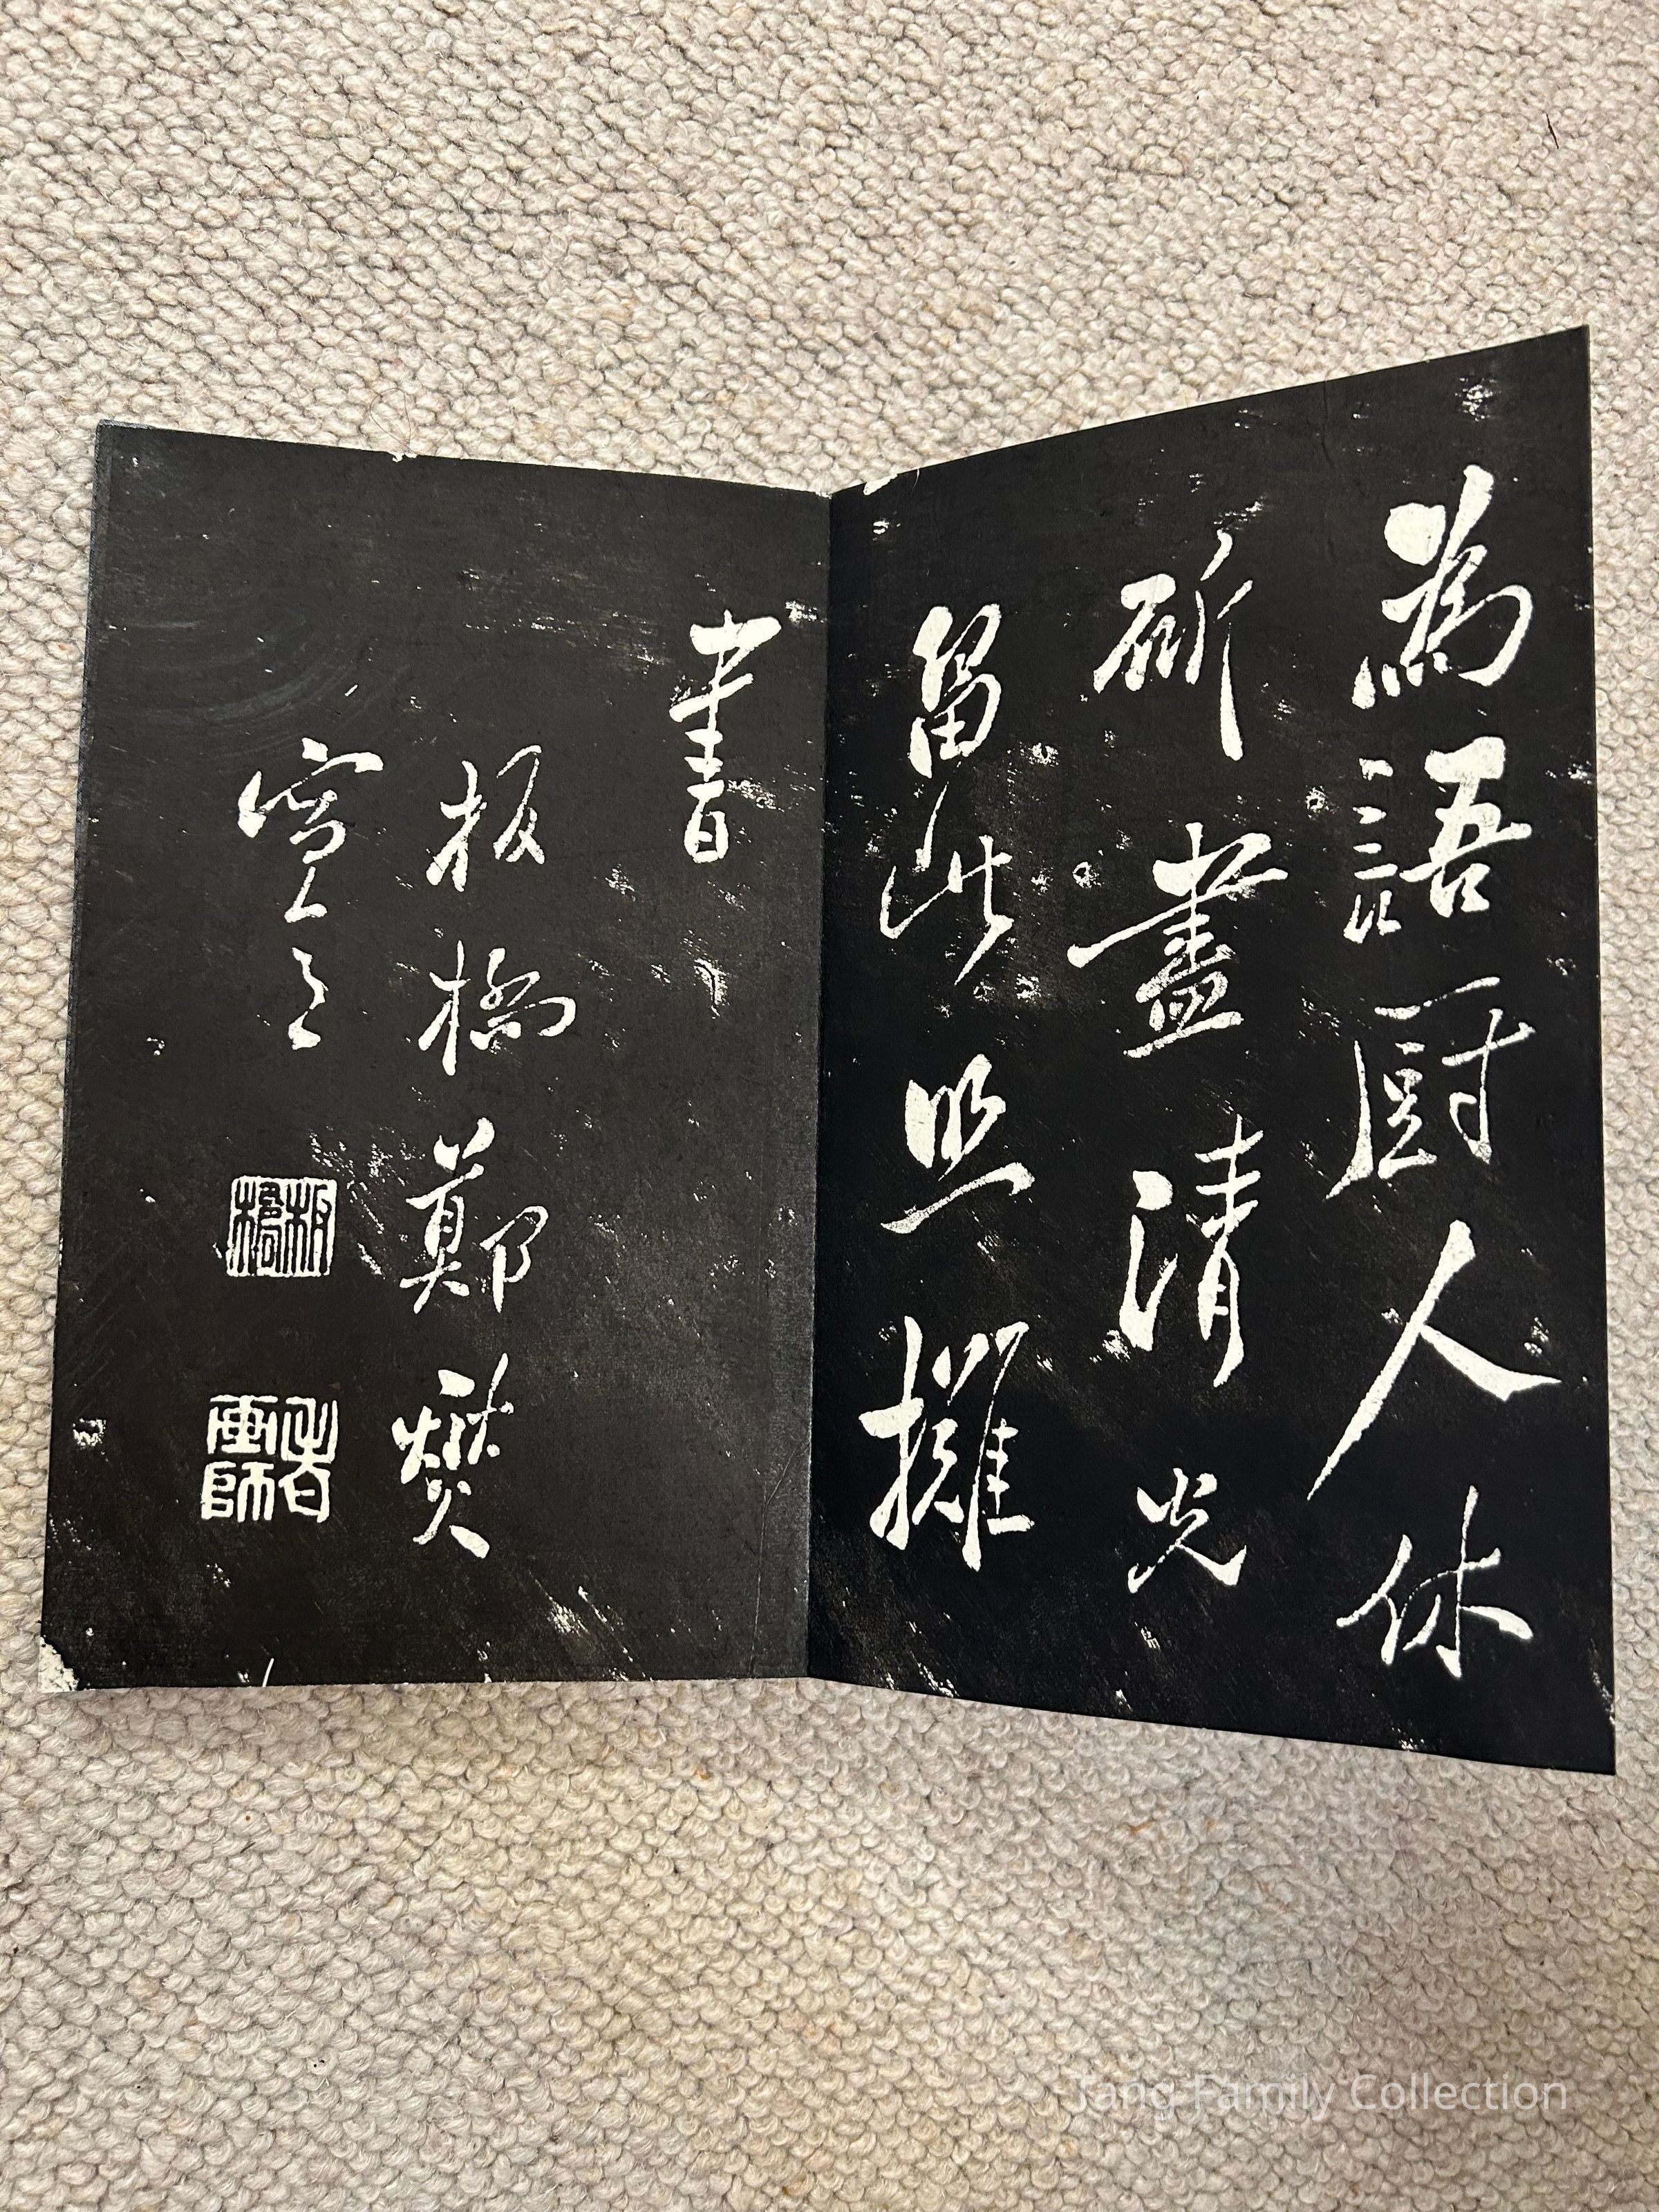 為語厨人休
斫盡清光
留此照攤
書
板橋鄭燮
板橋
Tang Family Collection